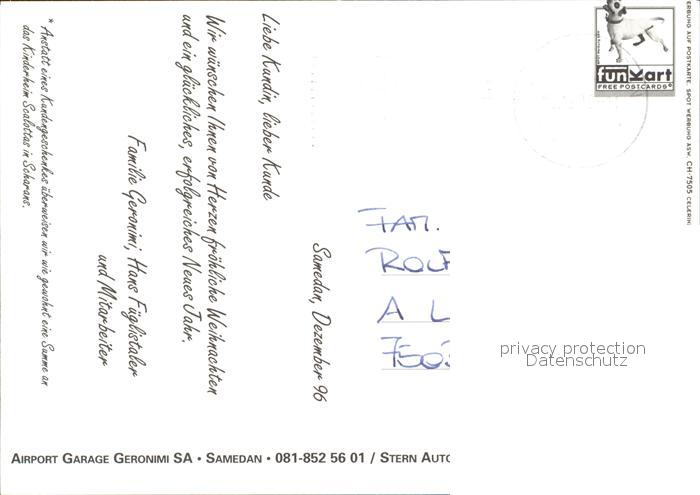 Samedan, Dezember 96
Liebe Kundin, lieber Kunde
Wir wünschen Ihnen von Herzen fröhliche Weihnachten
und ein glückliches, erfolgreiches Neues Jahr.
Familie Geronimi, Hans Füglistaler
und Mitarbeiter
* Anstatt eines Kundengeschenkes überweisen wir wie gewohnt eine Summe an
das Kinderheim Scalottas in Scharans.
AIRPORT GARAGE GERONIMI SA • SAMEDAN • 081-852 56 01 / STERN AUTO
funKart
FREE POSTCARDS
ERBUNG AUF POSTKARTE. SPOT WERBUNG ASW. CH-7505 CELERINA
FAM.
ROLF
A L
7503
privacy protection
Datenschutz